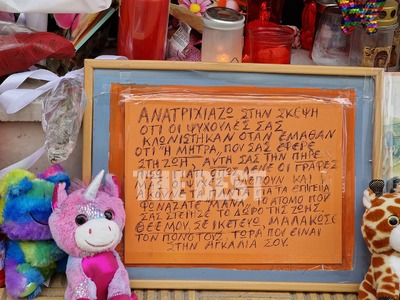 ΑΝΑΤΡΙΧΙΑΖΩ ΣΤΗΝ ΣΚΕΨΗ
ΟΤΙ ΟΙ ΨΥΧΟΥΛΕΣ ΣΑΣ
ΚΛΟΝΙΣΤΗΚΑΝ ΟΤΑΝ ΕΜΑΘΑΝ
ΟΤΙ "Η ΜΗΤΡΑ, ΠΟΥ ΣΑΣ ΕΦΕΡΕ
ΣΤΗ ΖΩΗ, ΑΥΤΗ ΣΑΣ ΤΗΝ ΠΗΡΕ
ΟΙ ΓΡΑΦΕΣ
THE BEST
ΚΑΙ
ΓΙΑ ΤΑ ΕΠΙΓΕΙΑ
ΦΩΝΑΖΑΤΕ ΜΑΝΑ, ΤΟ ΑΤΟΜΟ ΠΟΥ
ΣΑΣ ΣΤΕΡΗΣΕ ΤΟ ΔΩΡΟ ΤΗΣ ΖΩΗΣ
ΘΕΕ ΜΟΥ, ΣΕ ΙΚΕΤΕΥΩ, ΜΑΛΑΚΩΣΕ
ΤΟΝ ΠΟΝΟ ΤΟΥΣ ΤΩΡΑ ΠΟΥ ΕΙΝΑΙ
ΣΤΗΝ ΑΓΚΑΛΙΑ ΣΟΥ.